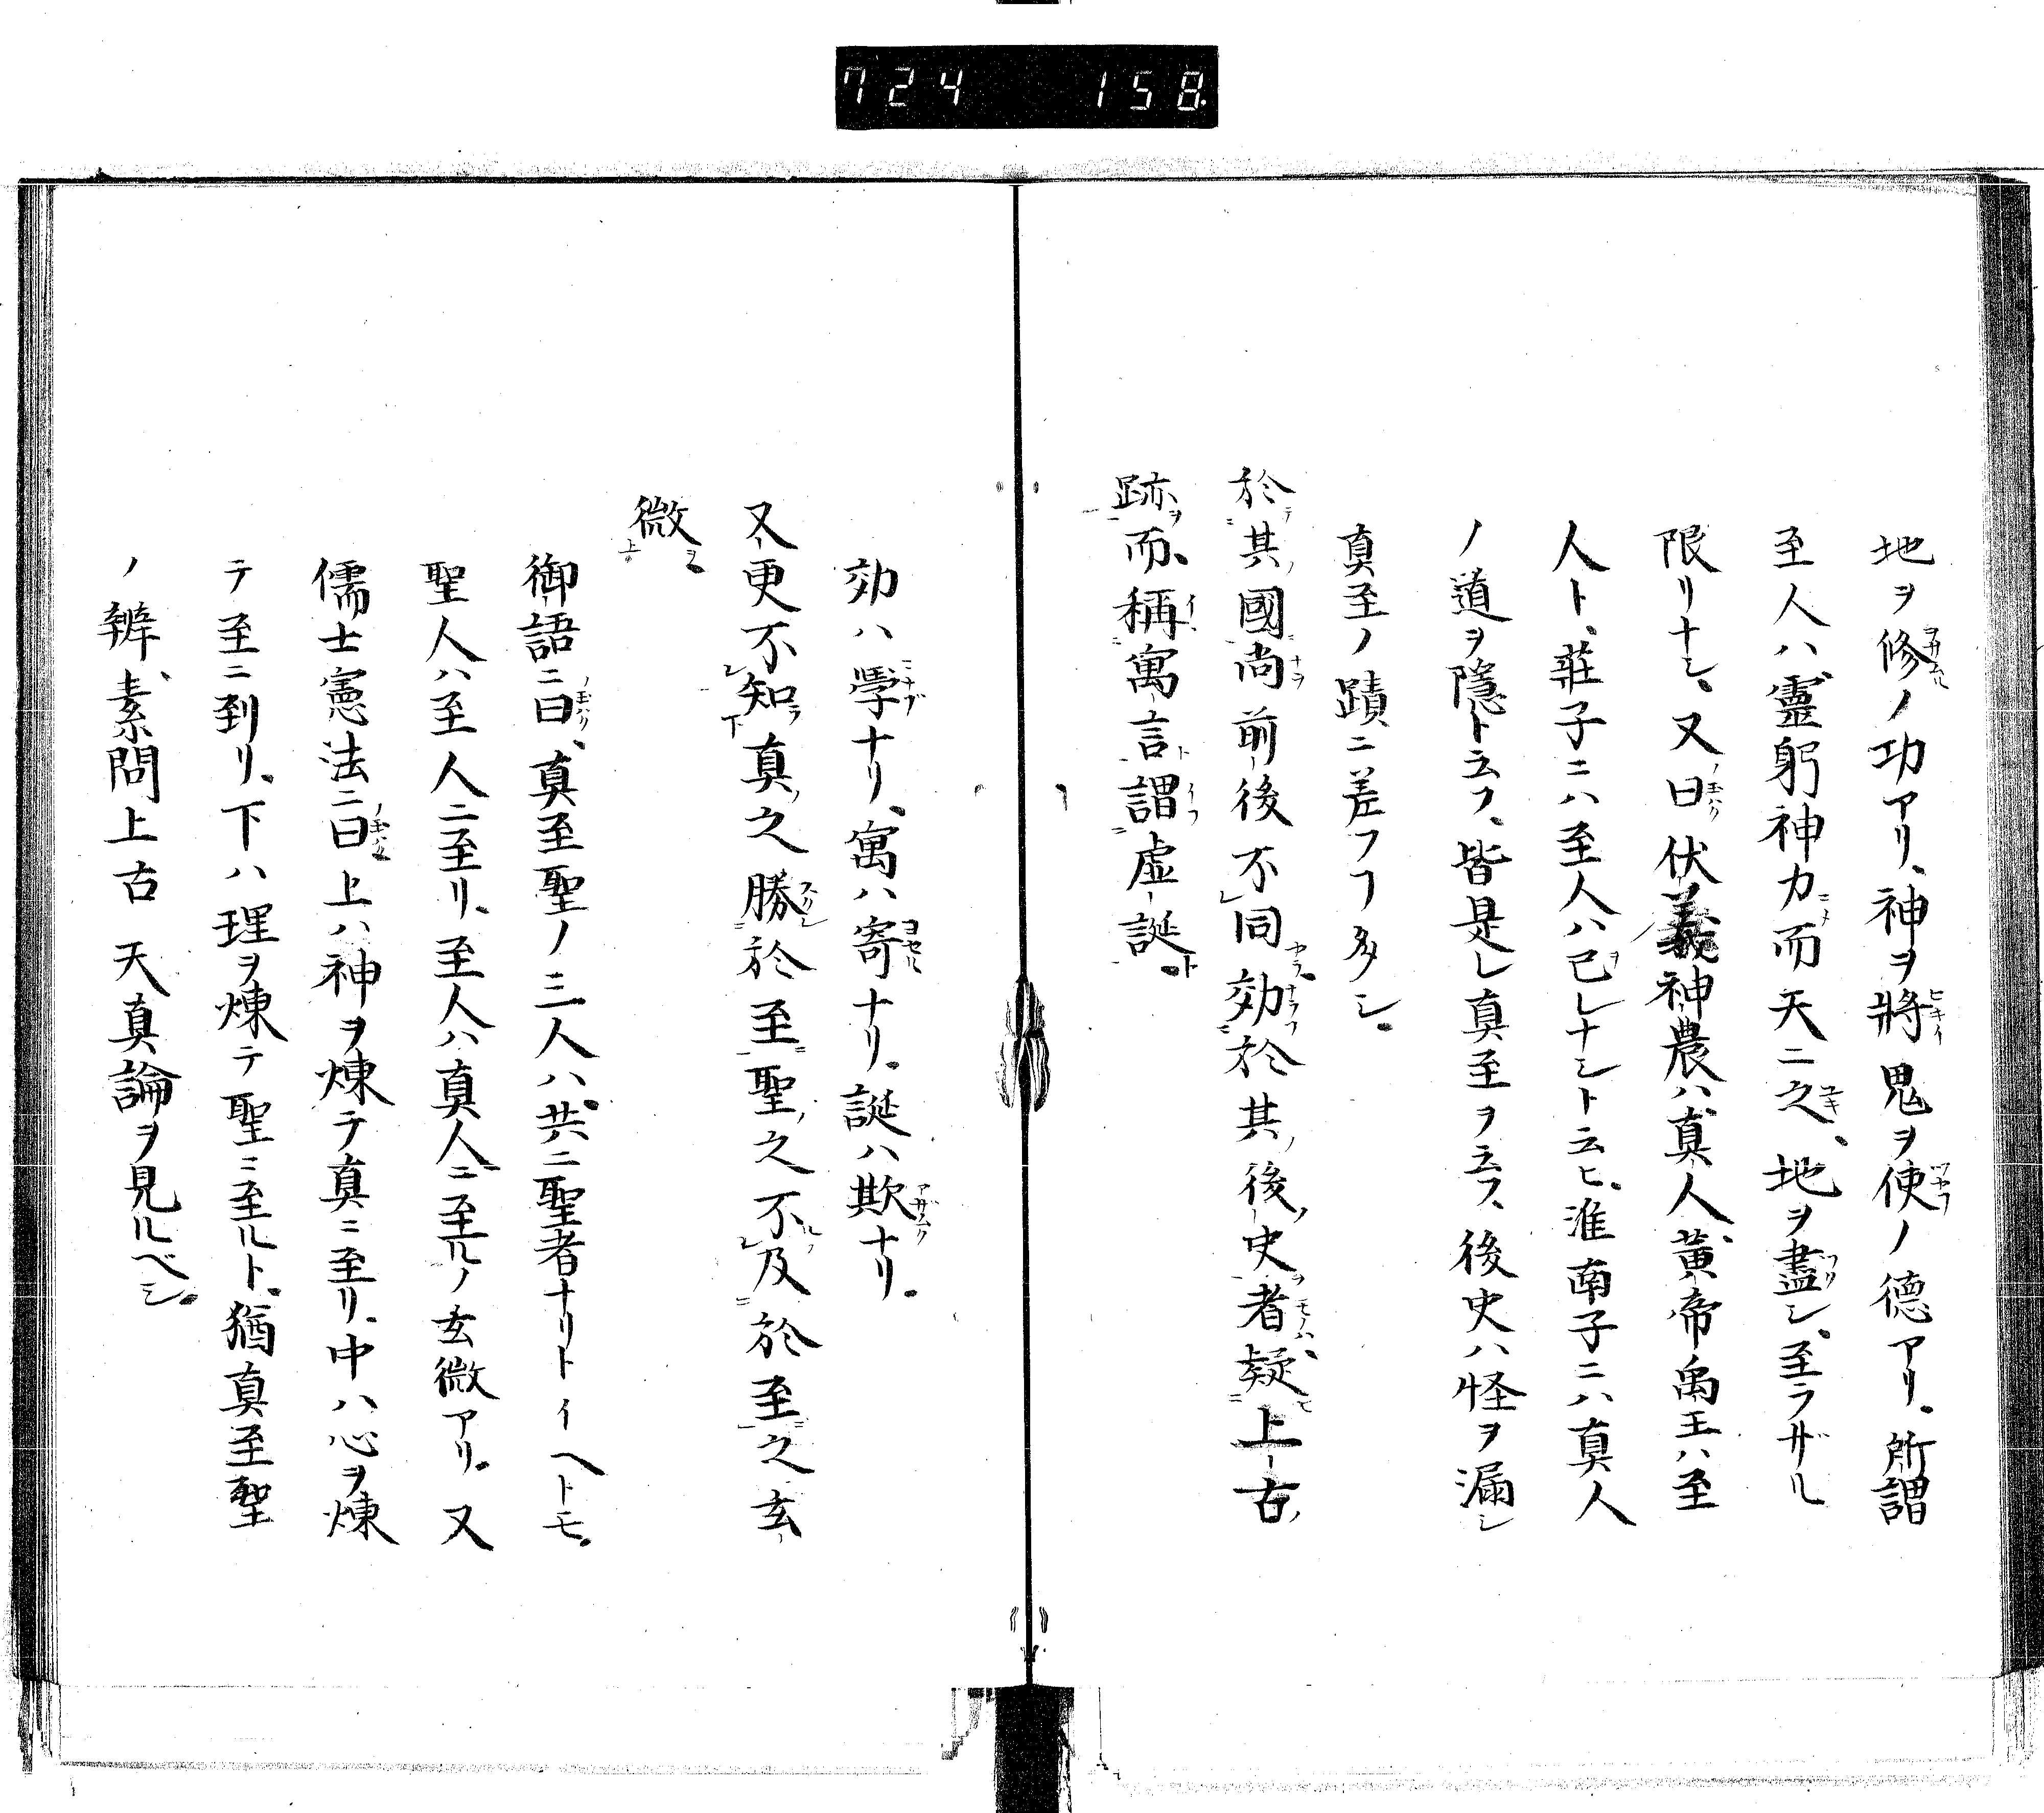 724 158
地ヲ修ノ功アリ、神ヲ將鬼ヲ使ノ德アリ。所謂
至人ハ、靈躬神力而天ニ之、地ヲ盡シ、至ラザル
限リナシ、又曰伏羲神農ハ、真人、黃帝禹王ハ至
人ト、莊子ニハ至人ハ己レナシト云ヒ、淮南子ニハ真人
ノ道ヲ隱ト云フ、皆是レ真至ヲ云フ、後史ハ怪ヲ漏シ
真至ノ蹟ニ差フフ多シ。
於其國尚前後不同効於其後史者疑上古
跡而稱寓言謂虛誕
効ハ學ナリ、寓ハ寄ナリ。誕ハ欺ナリ。
又更不知真之勝於至聖之不及於至之玄
微
御語ニ曰、真至聖ノ三人ハ、共ニ聖者ナリトイヘトモ。
聖人ハ至人ニ至リ、至人ハ真人ニ至ルノ玄微アリ。又
儒士憲法ニ曰上ハ神ヲ煉テ真ニ至リ、中ハ心ヲ煉
テ至ニ到リ。下ハ理ヲ煉テ聖ニ至ルト。猶真至聖
ノ辨、素問上古天真論ヲ見ルベシ。